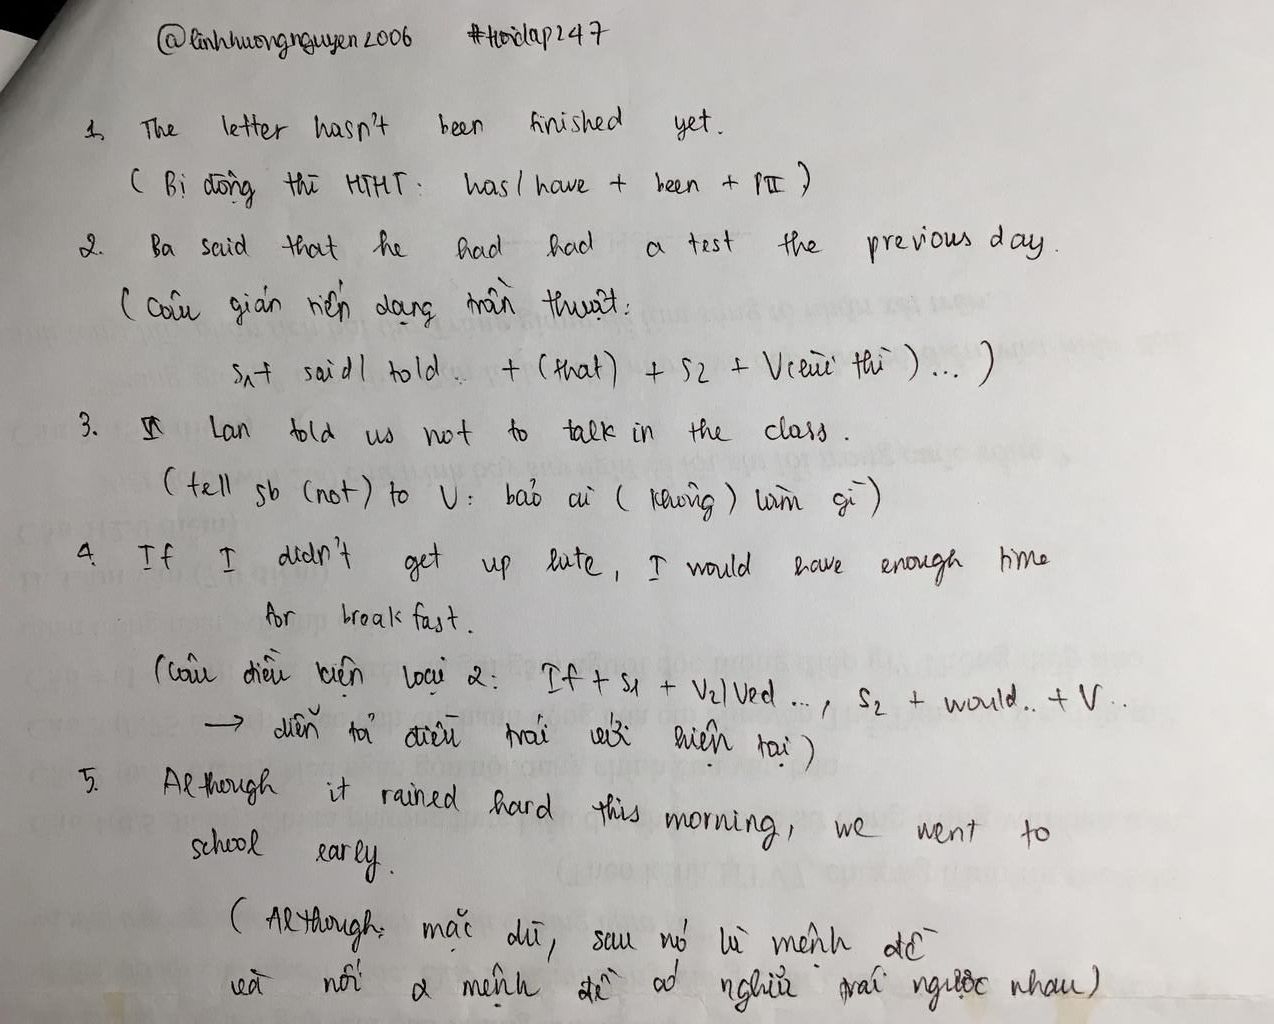 @linhhuongnguyen2006 #hoidap247
1, The letter hasn't been finished yet.
( Bị động thì HTHT: has/have + been + PII )
2. Ba said that he had had a test the previous day.
( Câu gián tiếp dạng trần thuật:
S1+ said/ told.. + (that) + S2 + V(lùi thì ) ... )
3. Lan told us not to talk in the class.
( tell sb (not) to V: bảo ai ( không ) làm gì )
4. If I didn't get up late, I would have enough time
for breakfast.
(Câu điều kiện loại 2: If + S1 + V2/Ved ..., S2 + would.. + V..
→ diễn tả điều trái với hiện tại )
5. Although it rained hard this morning, we went to
school early.
( Although: mặc dù, sau nó là mệnh đề
và nối 2 mệnh đề có nghĩa trái ngược nhau )